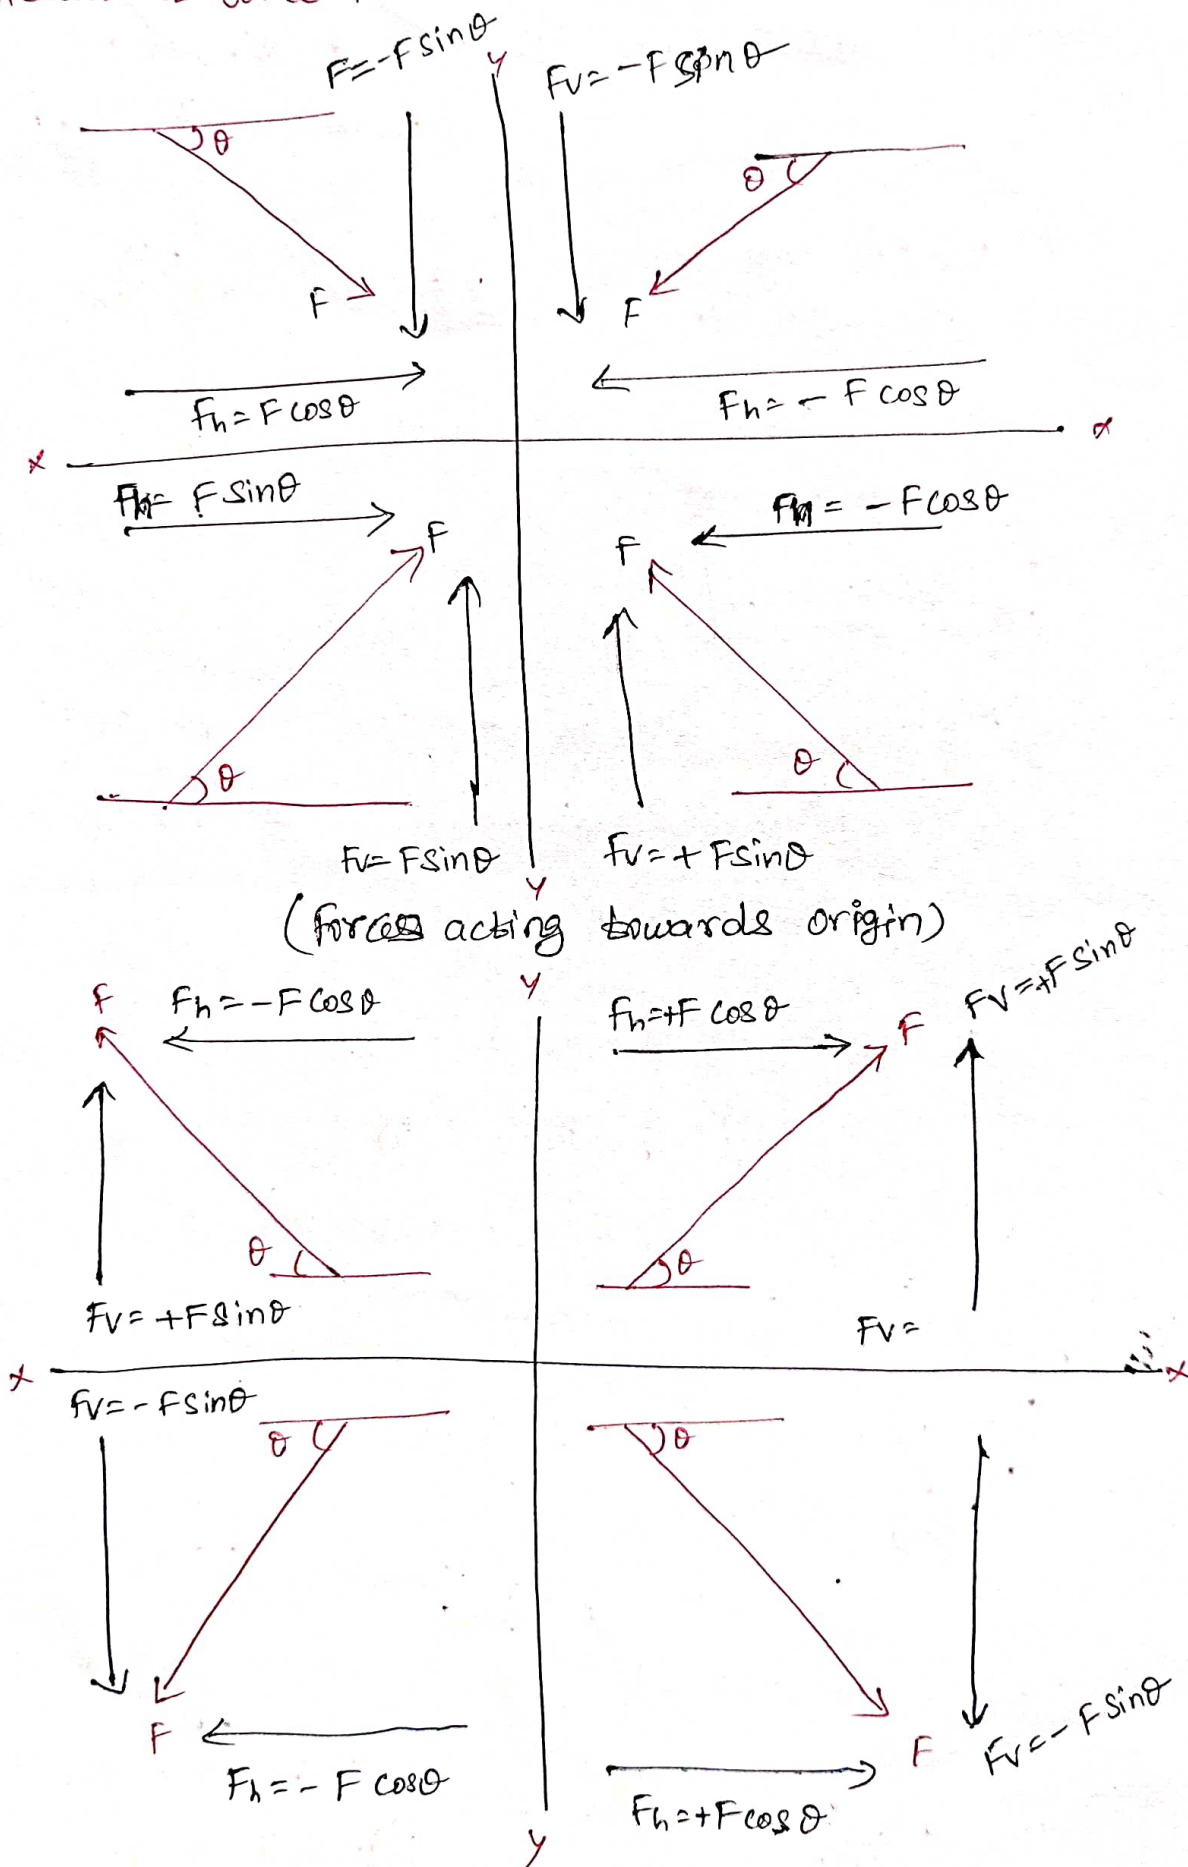 F=-Fsinθ
y
Fv=-Fsinθ
θ
θ
F
F
Fh=Fcosθ
Fh=-Fcosθ
x
x
Fh=Fsinθ
Fh=-Fcosθ
F
F
θ
θ
Fv=Fsinθ
Fv=+Fsinθ
y
(forces acting towards origin)
F
Fh=-Fcosθ
y
Fh=+Fcosθ
F
Fv=+Fsinθ
θ
θ
Fv=+Fsinθ
Fv=
x
x
Fv=-Fsinθ
θ
θ
F
F
Fv=-Fsinθ
Fh=-Fcosθ
Fh=+Fcosθ
y